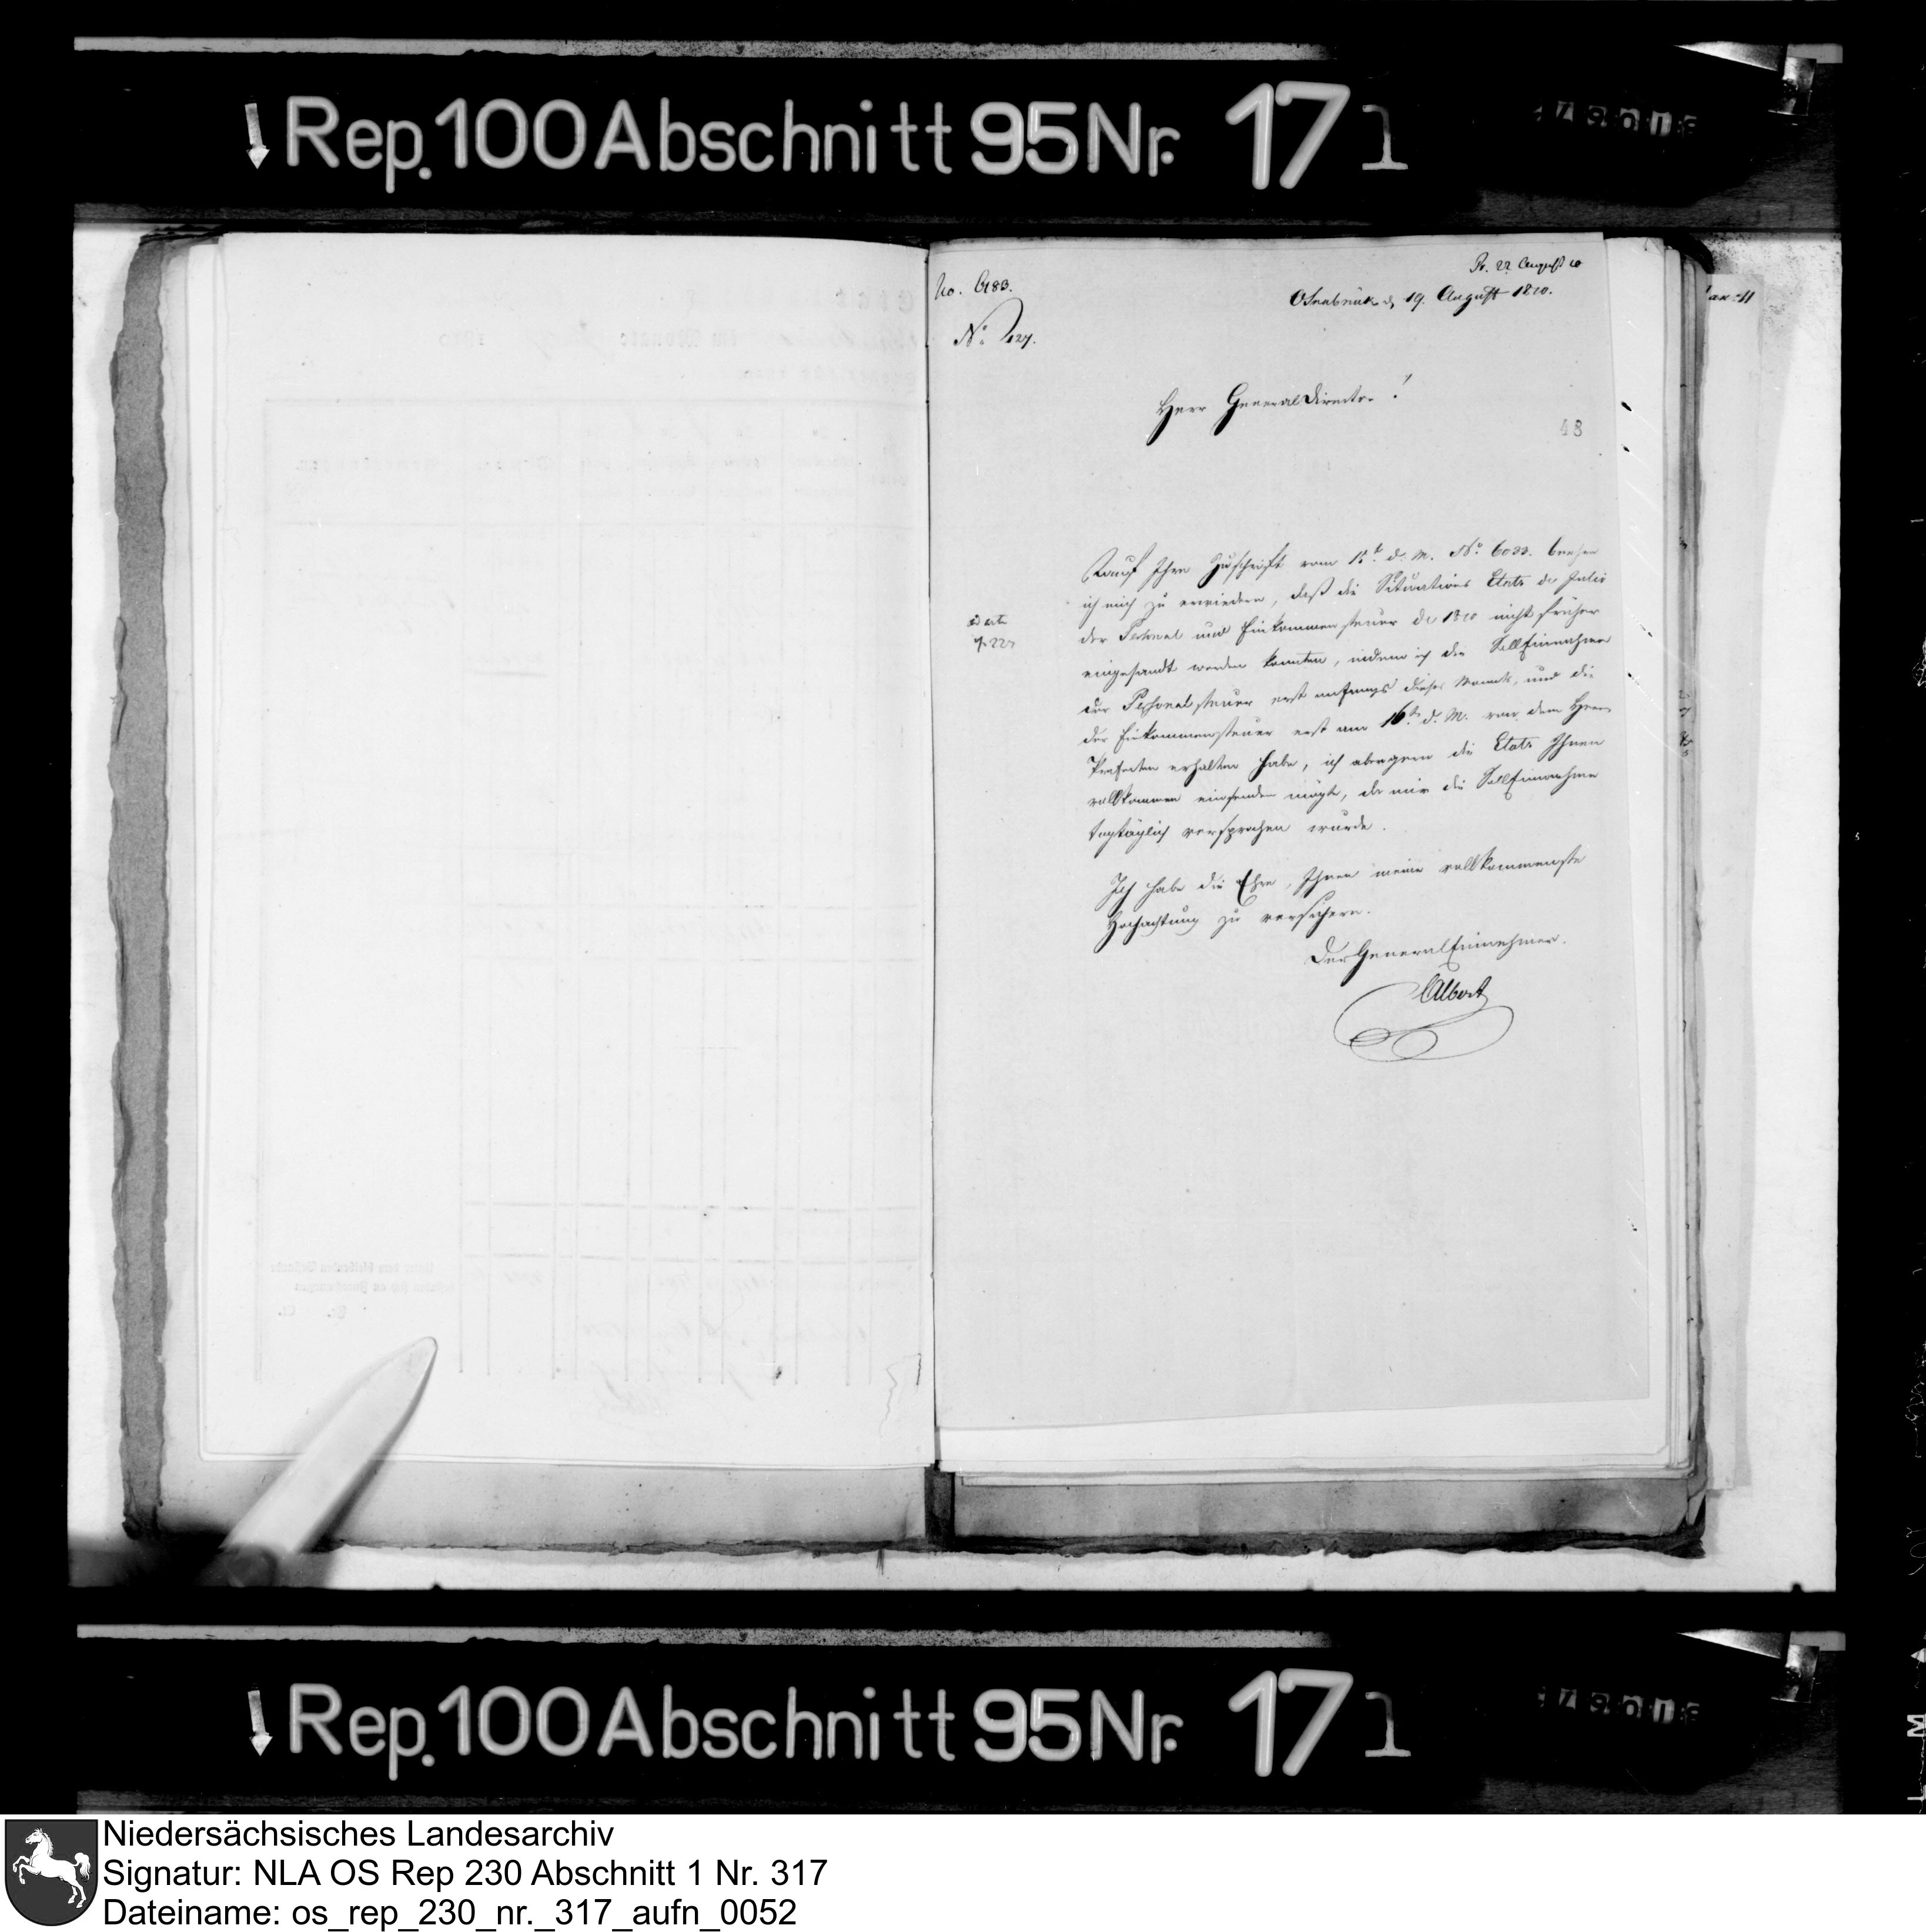 Rep. 100 Abschnitt 95 Nr. 171
No. 6183.
Pr. 22 August 10
Osnabrück d. 19. August 1810.
No. 427.
Herr GeneralDirector!
48
Auf Ihre Zuschrift vom 15t. d. M. No. 6033. beehre
ich mich zu erwiedern, daß die Situations Etats de Julii
der Personal und Einkommensteuer de 1810 nicht früher
eingesandt werden konnten, indem ich die SollEinnahme
der Personalsteuer erst anfangs dieses Monats, und die
der Einkommensteuer erst am 16t. d. M. von dem Herrn
Präfecten erhalten habe, ich aber gern die Etats Ihnen
vollkommen einsenden mögte, da mir die SollEinnahme
tagtäglich versprochen wurde.
Ich habe die Ehre, Ihnen meine vollkommenste
Hochachtung zu versichern.
Der GeneralEinnehmer.
Albert
Rep. 100 Abschnitt 95 Nr. 171
Niedersächsisches Landesarchiv
Signatur: NLA OS Rep 230 Abschnitt 1 Nr. 317
Dateiname: os_rep_230_nr._317_aufn_0052